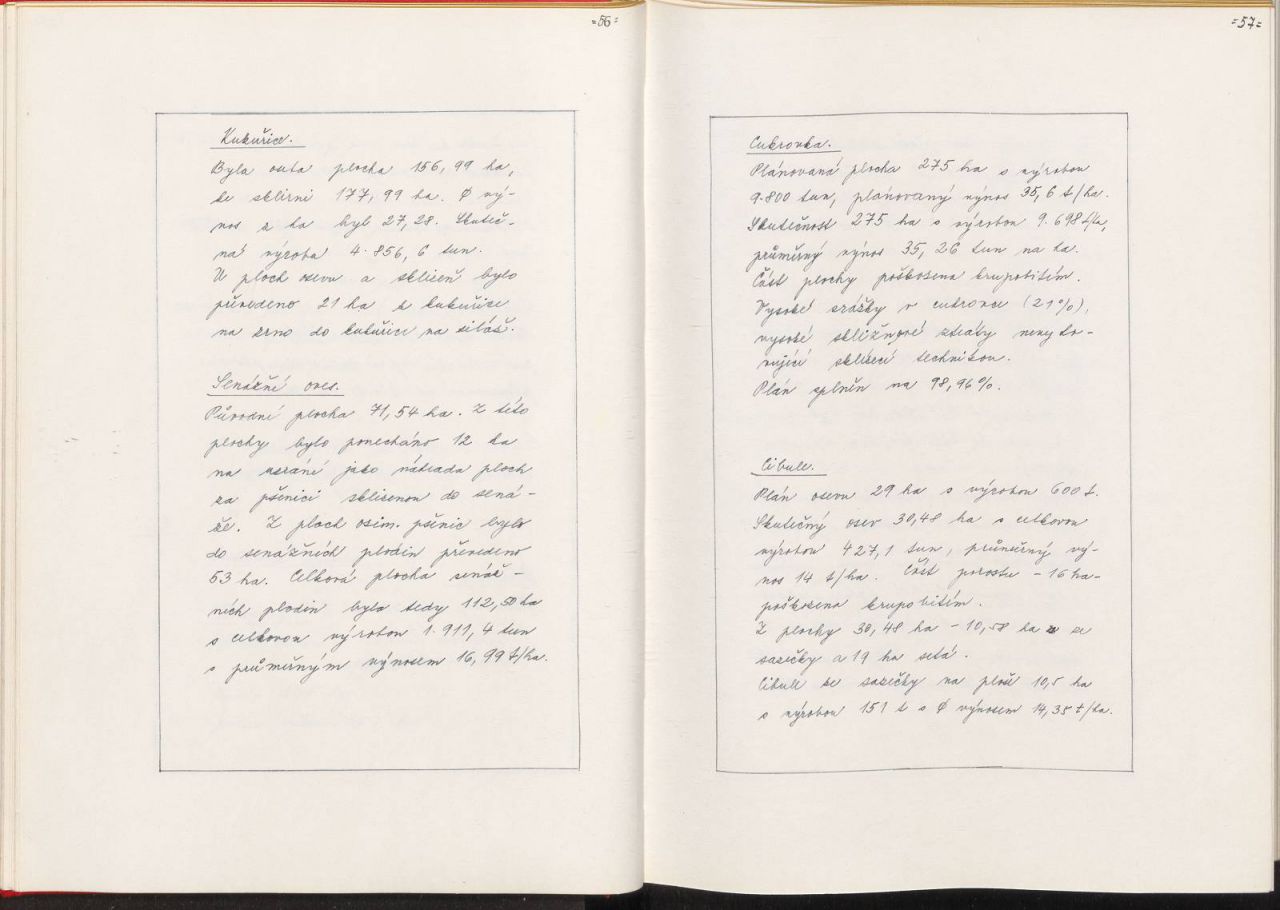 =56=
Kukuřice.
Byla outa plocha 156,99 ha,
ke sklizni 177,99 ha. Ø vý-
nos z ha byl 27,28. Skuteč-
ná výroba 4.856,6 tun.
U ploch osevu a sklizeň bylo
převedeno 21 ha z kukuřice
na zrno do kukuřice na siláž.
Senážní oves.
Původní plocha 71,54 ha. Z této
plochy bylo ponecháno 12 ha
na uzrání jako náhrada ploch
za pšenici sklizenou do sená-
že. Z ploch ozim. pšenic bylo
do senážních plodin převedeno
53 ha. Celková plocha senáž-
ních plodin byla tedy 112,50 ha
s celkovou výrobou 1.911,4 tun
s průměrným výnosem 16,99 t/ha.
=57=
Cukrovka.
Plánovaná plocha 275 ha s výrobou
9.800 tun, plánovaný výnos 35,6 t/ha.
Skutečnost 275 ha s výrobou 9.698 t/ha,
průměrný výnos 35,26 tun na ha.
Část plochy poškozena krupobitím.
Vysoké srážky v cukrovce (21%),
vysoké sklizňové ztráty nevyho-
vující sklizecí technikou.
Plán splněn na 98,96%.
Cibule.
Plán osevu 29 ha s výrobou 600 t.
Skutečný osev 30,48 ha s celkovou
výrobou 427,1 tun, průměrný vý-
nos 14 t/ha. Část porostu - 16 ha-
poškozena krupobitím.
Z plochy 30,48 ha - 10,58 ha ze
sazečky a 19 ha setá.
Cibule ze sazečky na ploše 10,5 ha
s výrobou 151 t s Ø výnosem 14,35 t/ha.